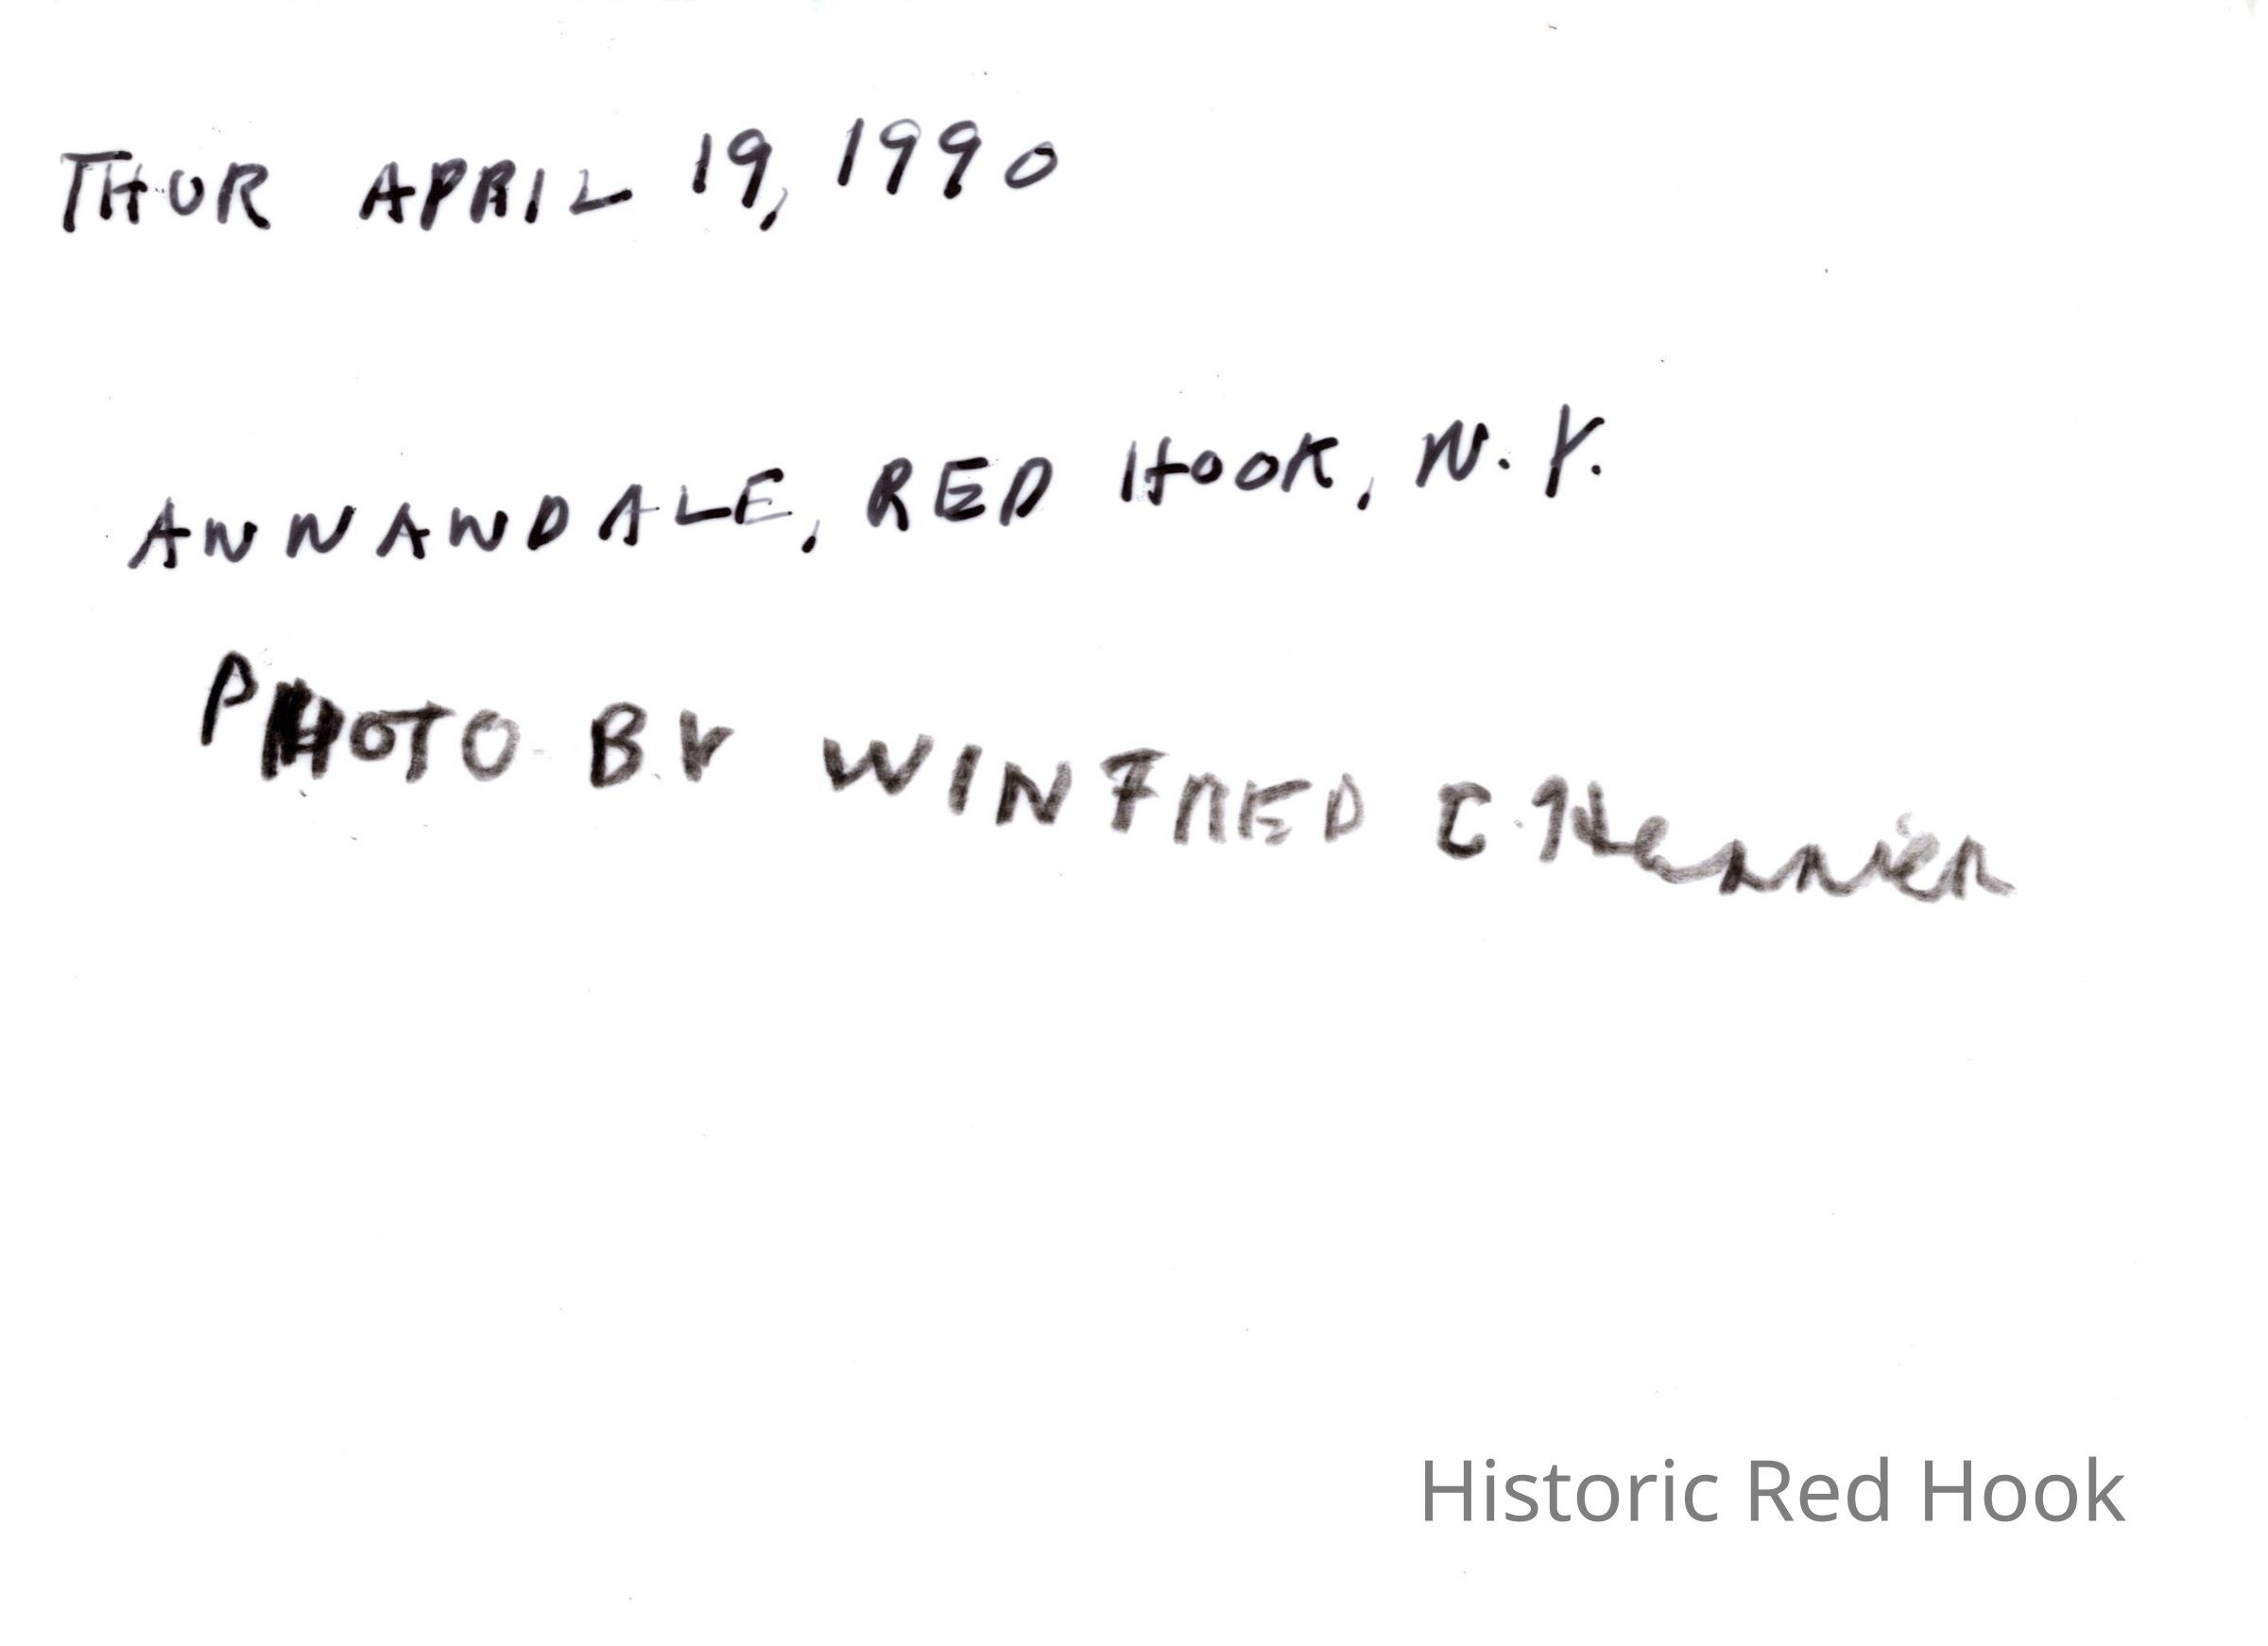 THUR APRIL 19, 1990
ANNANDALE, RED HOOK, N.Y.
PHOTO BY WINFRED C.
Historic Red Hook